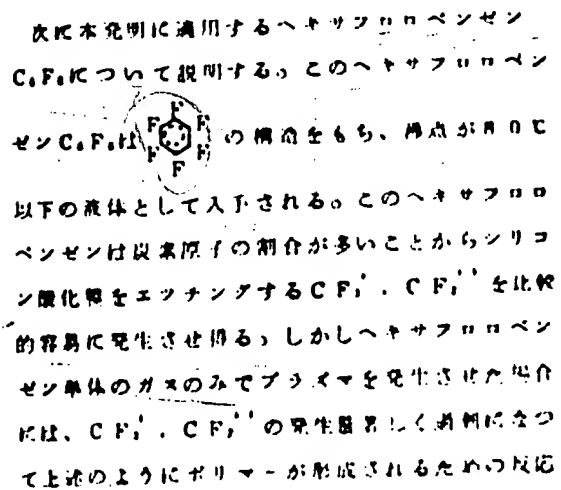 次に本発明に適用するヘキサフロロベンゼン
C₆F₆について説明する。このヘキサフロロベン
ゼンC₆F₆は F F F F F F の構造をもち、沸点が80℃
以下の液体として入手される。このヘキサフロロ
ベンゼンは炭素原子の割合が多いことからシリコ
ン酸化膜をエッチングするCF を比較
的容易に発生させ得る。しかしヘキサフロロベン
ゼン単体のガスのみでプラズマを発生させた場合
には、CF の発生 著しく過剰になつ
て上述のようにポリマーが形成されるための反応